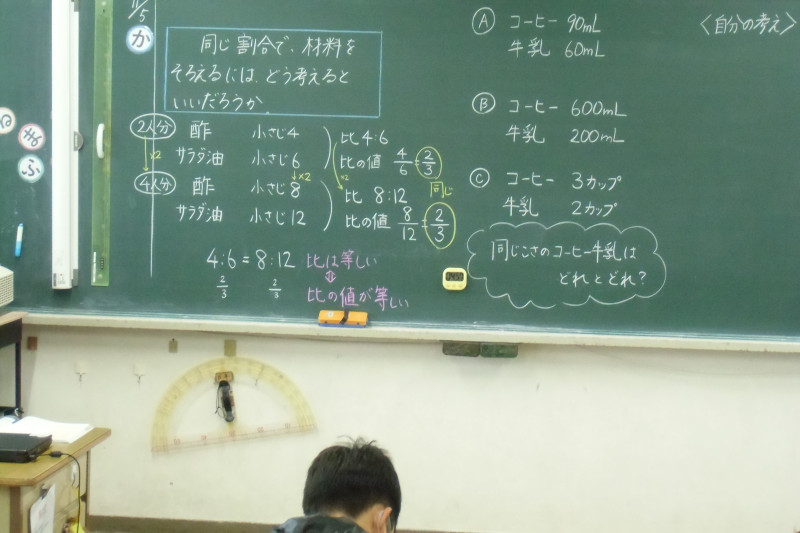 11/5
か
同じ割合で、材料を
そろえるには、どう考えると
いいだろうか
2人分 酢 小さじ4
サラダ油 小さじ6
比4:6
比の値 4/6=2/3
×2
×2
×2
4人分 酢 小さじ8
サラダ油 小さじ12
比 8:12
比の値 8/12=2/3
同じ
4:6=8:12 比は等しい
2/3 2/3
⇕
比の値が等しい
Ⓐ コーヒー 90mL
牛乳 60mL
Ⓑ コーヒー 600mL
牛乳 200mL
Ⓒ コーヒー 3カップ
牛乳 2カップ
同じこさのコーヒー牛乳は
どれとどれ?
〈自分の考え〉
ま
ふ